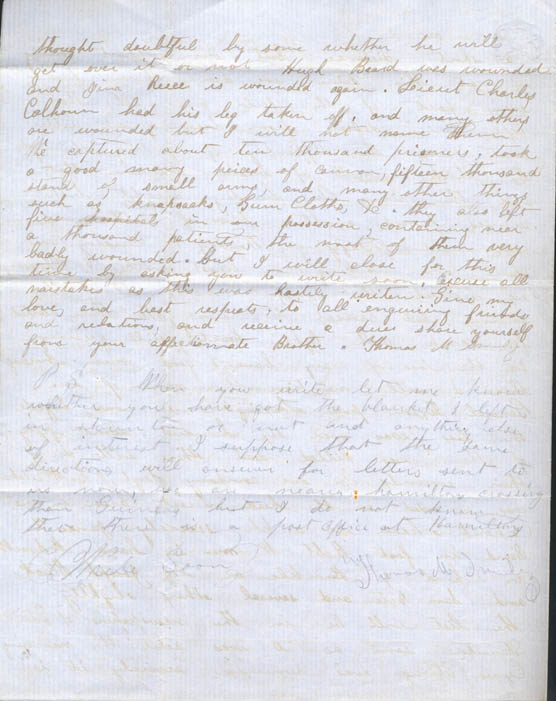 thought doubtful by some whether he will
get over it or not Hugh Beard was wounded
and Jima Reece is wounded again. Lieut Charley
Calhoun had his leg taken off, and many others
are wounded but I will not name them
We captured about ten thousand prisoners, took
a good many peices of cannon, fifteen thousand
stand of small arms, and many other things
such as knapsacks, Gum Cloths, &c. they also left
five hospital in our possession, containing near
a thousand patients, the most of them very
badly wounded. but I will close for this
time by asking you to write soon, excuse all
mistakes as this was hastily writen. Give my
love, and best respects, to all enquiring friends
and relations, and receive a due share yourself
from your affectionate Brother. Thomas M
P.S. When you write let me know
whether you have got the blanket I left
in or not and anything else
of interest I suppose that the same
directions will answer for letters sent to
us now, we are nearer hamilton crossing
than Guineas but I do not know
there is a post office at Hamilton
Write Soon
Thomas M Smiley